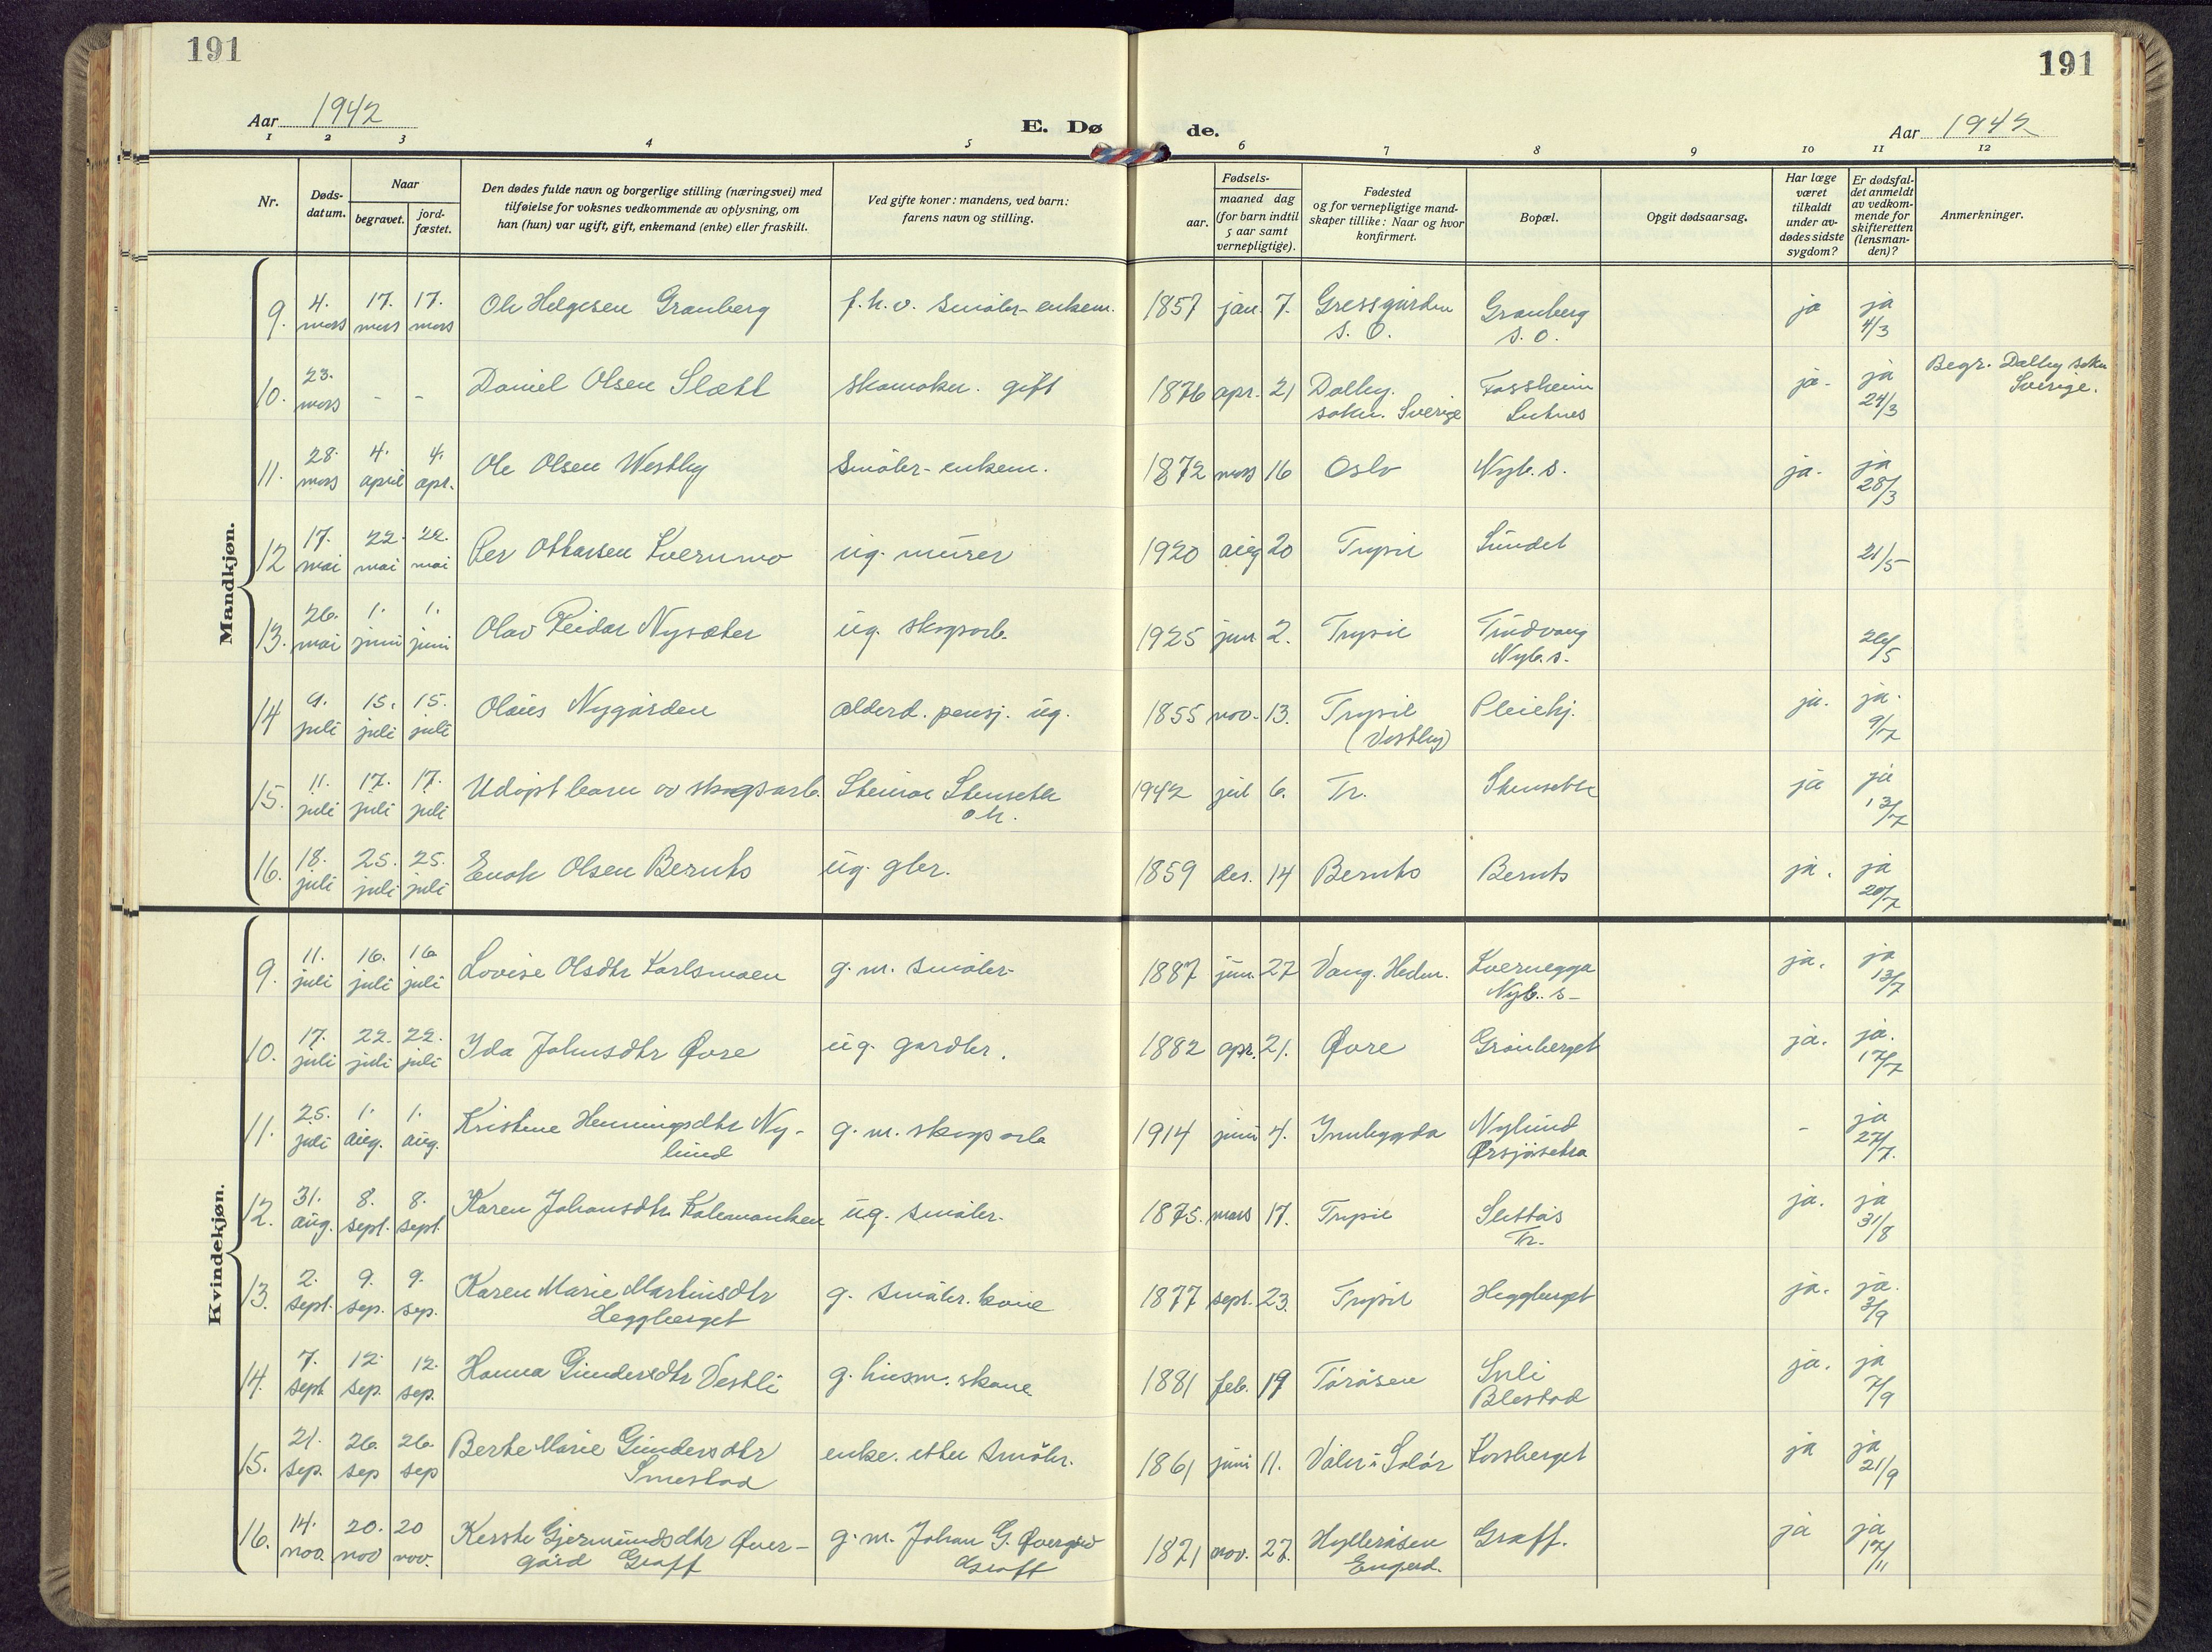 191
191
Aar 1942
E. Dø
de.
Aar 1942
1 2 3 4 5 6 7 8 9 10 11 12
Nr.
Døds-
datum.
Naar
begravet.
jord-
fæstet.
Den dødes fulde navn og borgerlige stilling (næringsvei) med
tilføielse for voksnes vedkommende av oplysning, om
han (hun) var ugift, gift, enkemand (enke) eller fraskilt.
Ved gifte koner: mandens, ved barn:
farens navn og stilling.
Fødsels-
aar.
maaned dag
(for barn indtil
5 aar samt
vernepligtige).
Fødested
og for vernepligtige mand-
skaper tillike: Naar og hvor
konfirmert.
Bopæl.
Opgit dødsaarsag.
Har læge
været
tilkaldt
under av-
dødes sidste
sygdom?
Er dødsfal-
det anmeldt
av vedkom-
mende for
skifteretten
(lensman-
den)?
Anmerkninger.
Mandkjøn.
9. 4. mars 17. mars 17. mars Ole Helgesen Granberg f.h.v. småbr. enkem. 1857 jan. 7. Gressgården S. O. Granberg S. O. ja ja 4/3
10. 23. mars - - Daniel Olsen Slätt skomaker. gift 1876 apr. 21 Dalby. sokn. Sverige Fossheim Lutnes ja. ja 24/3 Begr. Dalby sokn Sverige.
11. 28. mars 4. april 4. apr. Ole Olsen Westby Småbr. enkem. 1872 mars 16 Oslo Nyb. s. ja. ja 28/3
12 17. mai 22. mai 22. mai Per Ottarsen Kvernmo ug. murer 1920 aug 20 Trysil Sundet 21/5
13. 26. mai 1. juni 1. juni Olav Reidar Nysæter ug. skogsarb. 1925 jun. 2. Trysil Trudvang Nyb. s. 26/5
14 9. juli 15. juli 15. juli Olaus Nygården alderd. pensj. ug. 1855 nov. 13. Trysil (Vestby) Pleiehj. ja. ja. 9/7
15. 11. juli 17. juli 17. juli Udøpt barn av skogsarb. Steinar Stenseth o.h. 1942 jul 6. Tr. Stenseth ja ja 13/7
16. 18. juli 25. juli 25. juli Enok Olsen Bernts ug. gbr. 1859 des. 14 Bernts Bernts ja. ja 20/7
Kvindekjøn.
9. 11. juli 16. juli 16 juli Lovise Olsdtr Karlsmoen g. m. småbr. 1887 jun. 27 Vang. Hedm. Kvernegga Nyb. s. ja. ja 13/7
10. 17. juli 22. juli 22. juli Yda Johnsdtr Øvre ug. gardbr. 1882 apr. 21. Øvre Grønberget ja. ja. 17/7
11. 25. juli 1. aug. 1. aug. Kristine Henningsdtr Ny-
lund g. m. skogsarb 1914 juni 4. Innbygda Nylund Ørsjøsetra - ja 27/7.
12. 31. aug. 8. sept. 8. sept. Karen Johansdtr. Kolemanken ug. småbr. 1875. mars 17. Trysil Slettås Tr. ja. ja 31/8
13. 2. sept. 9. sep. 9. sep. Karen Marie Martinsdtr
Heggberget g. småbr. kone 1877 sept. 23. Trysil Heggberget ja. ja. 3/9
14. 7. sept 12. sep. 12. sep. Hanna Gundersdtr Vestli g. husm. skone 1881 feb. 19 Tøråsen Inli Blestad ja. ja 7/9
15. 21. sep. 26. sep 26. sep Berte Marie Gundersdtr
Smestad enke. etter småbr. 1861 juni 11. Våler i Solør Korsberget ja ja 21/9
16. 14. nov. 20. nov 20 nov. Kersti Gjermundsdtr Øver-
gård Graff g. m. Johan G. Øvergård
Graff 1871 nov. 27. Hylleråsen Engerd. Graff. ja ja 17/11